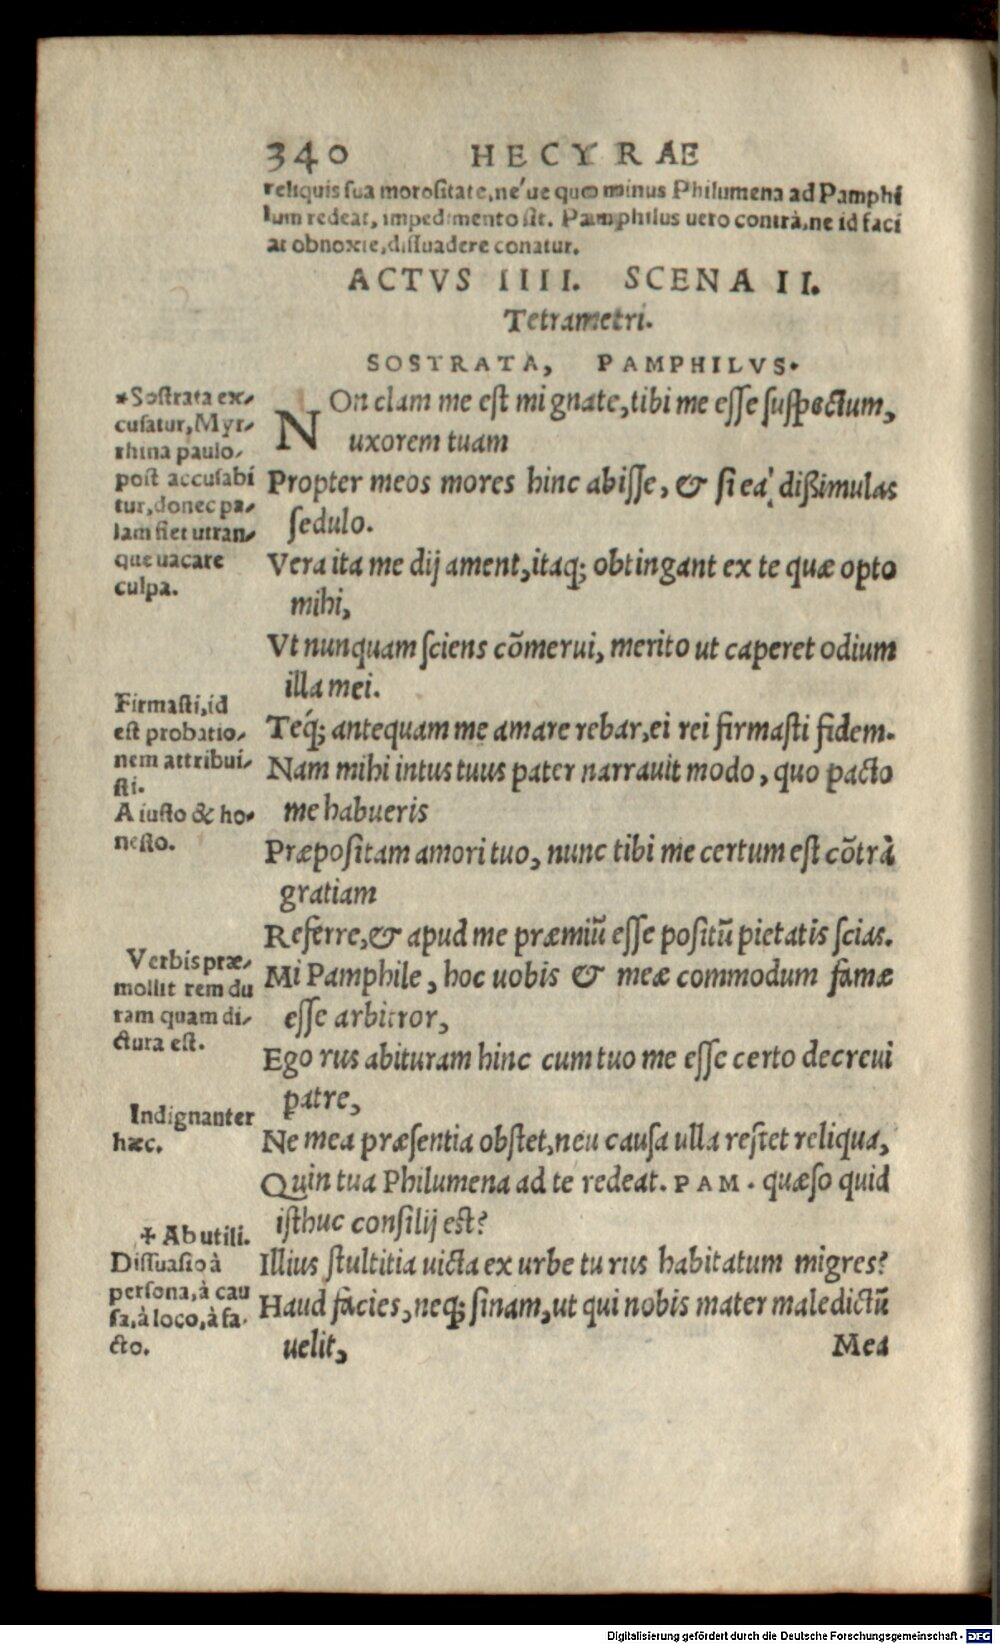 340 HECYRAE
reliquis sua morositate, ne´ue quo minus Philumena ad Pamphi
lum redeat, impedimento sit. Pamphilus uero contrà, ne id faci
at obnoxie, dissuadere conatur.
ACTVS IIII. SCENA II.
Tetrametri.
SOSTRATA, PAMPHILVS.
*Sostrata ex-
cusatur, Myr-
rhina paulo-
post accusabi
tur, donec pa-
lam fiet utran-
que uacare
culpa.
NOn clam me est mi gnate, tibi me esse suspectum,
uxorem tuam
Propter meos mores hinc abisse, & si ea dißimulas
sedulo.
Vera ita me dij ament, itaq; obtingant ex te quæ opto
mihi,
Vt nunquam sciens cõmerui, merito ut caperet odium
illa mei.
Firmasti, id
est probatio-
nem attribui-
sti.
A iusto & ho-
nesto.
Teq́; antequam me amare rebar, ei rei firmasti fidem.
Nam mihi intus tuus pater narrauit modo, quo pacto
me habueris
Præpositam amori tuo, nunc tibi me certum est cõtrà
gratiam
Referre, & apud me præmiũ esse positũ pietatis scias.
Verbis præ-
mollit rem du
ram quam di-
ctura est.
Mi Pamphile, hoc uobis & meæ commodum famæ
esse arbitror,
Ego rus abituram hinc cum tuo me esse certo decreui
patre,
Indignanter
hæc.
Ne mea præsentia obstet, neu causa ulla restet reliqua,
Quin tua Philumena ad te redeat. PAM. quæso quid
isthuc consilij est?
✠ Ab utili.
Dissuasio à
persona, à cau
sa, à loco, à fa-
cto.
Illius stultitia uicta ex urbe tu rus habitatum migres?
Haud facies, neq; sinam, ut qui nobis mater maledictũ
uelit, Mea
Digitalisierung gefördert durch die Deutsche Forschungsgemeinschaft - DFG